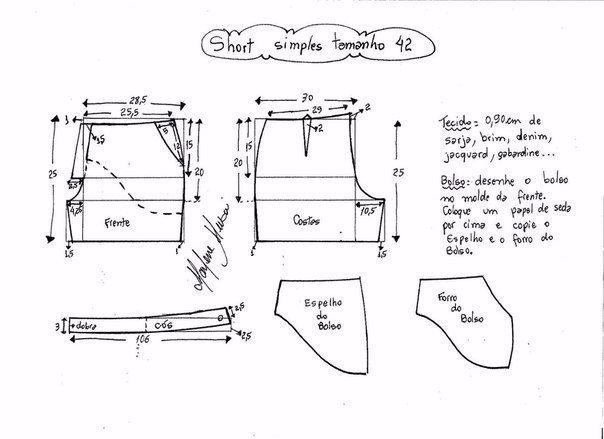 Short simples tamanho 42
28,5
25,5
1
3,5
5
12
15
20
25
3,5
4,25
Frente
1,5
1
30
29
2
2
15
20
20
25
25
10,5
Costas
1
1,5
Tecido = 0,90cm de
sarja, brim, denim,
jacquard, gabardine...
Bolso: desenhe o bolso
no molde da frente.
Coloque um papel de seda
por cima e copie o
Espelho e o forro do
Bolso.
3
dobra
cós
106
2,5
2,5
Espelho
do
Bolso
Forro
do
Bolso